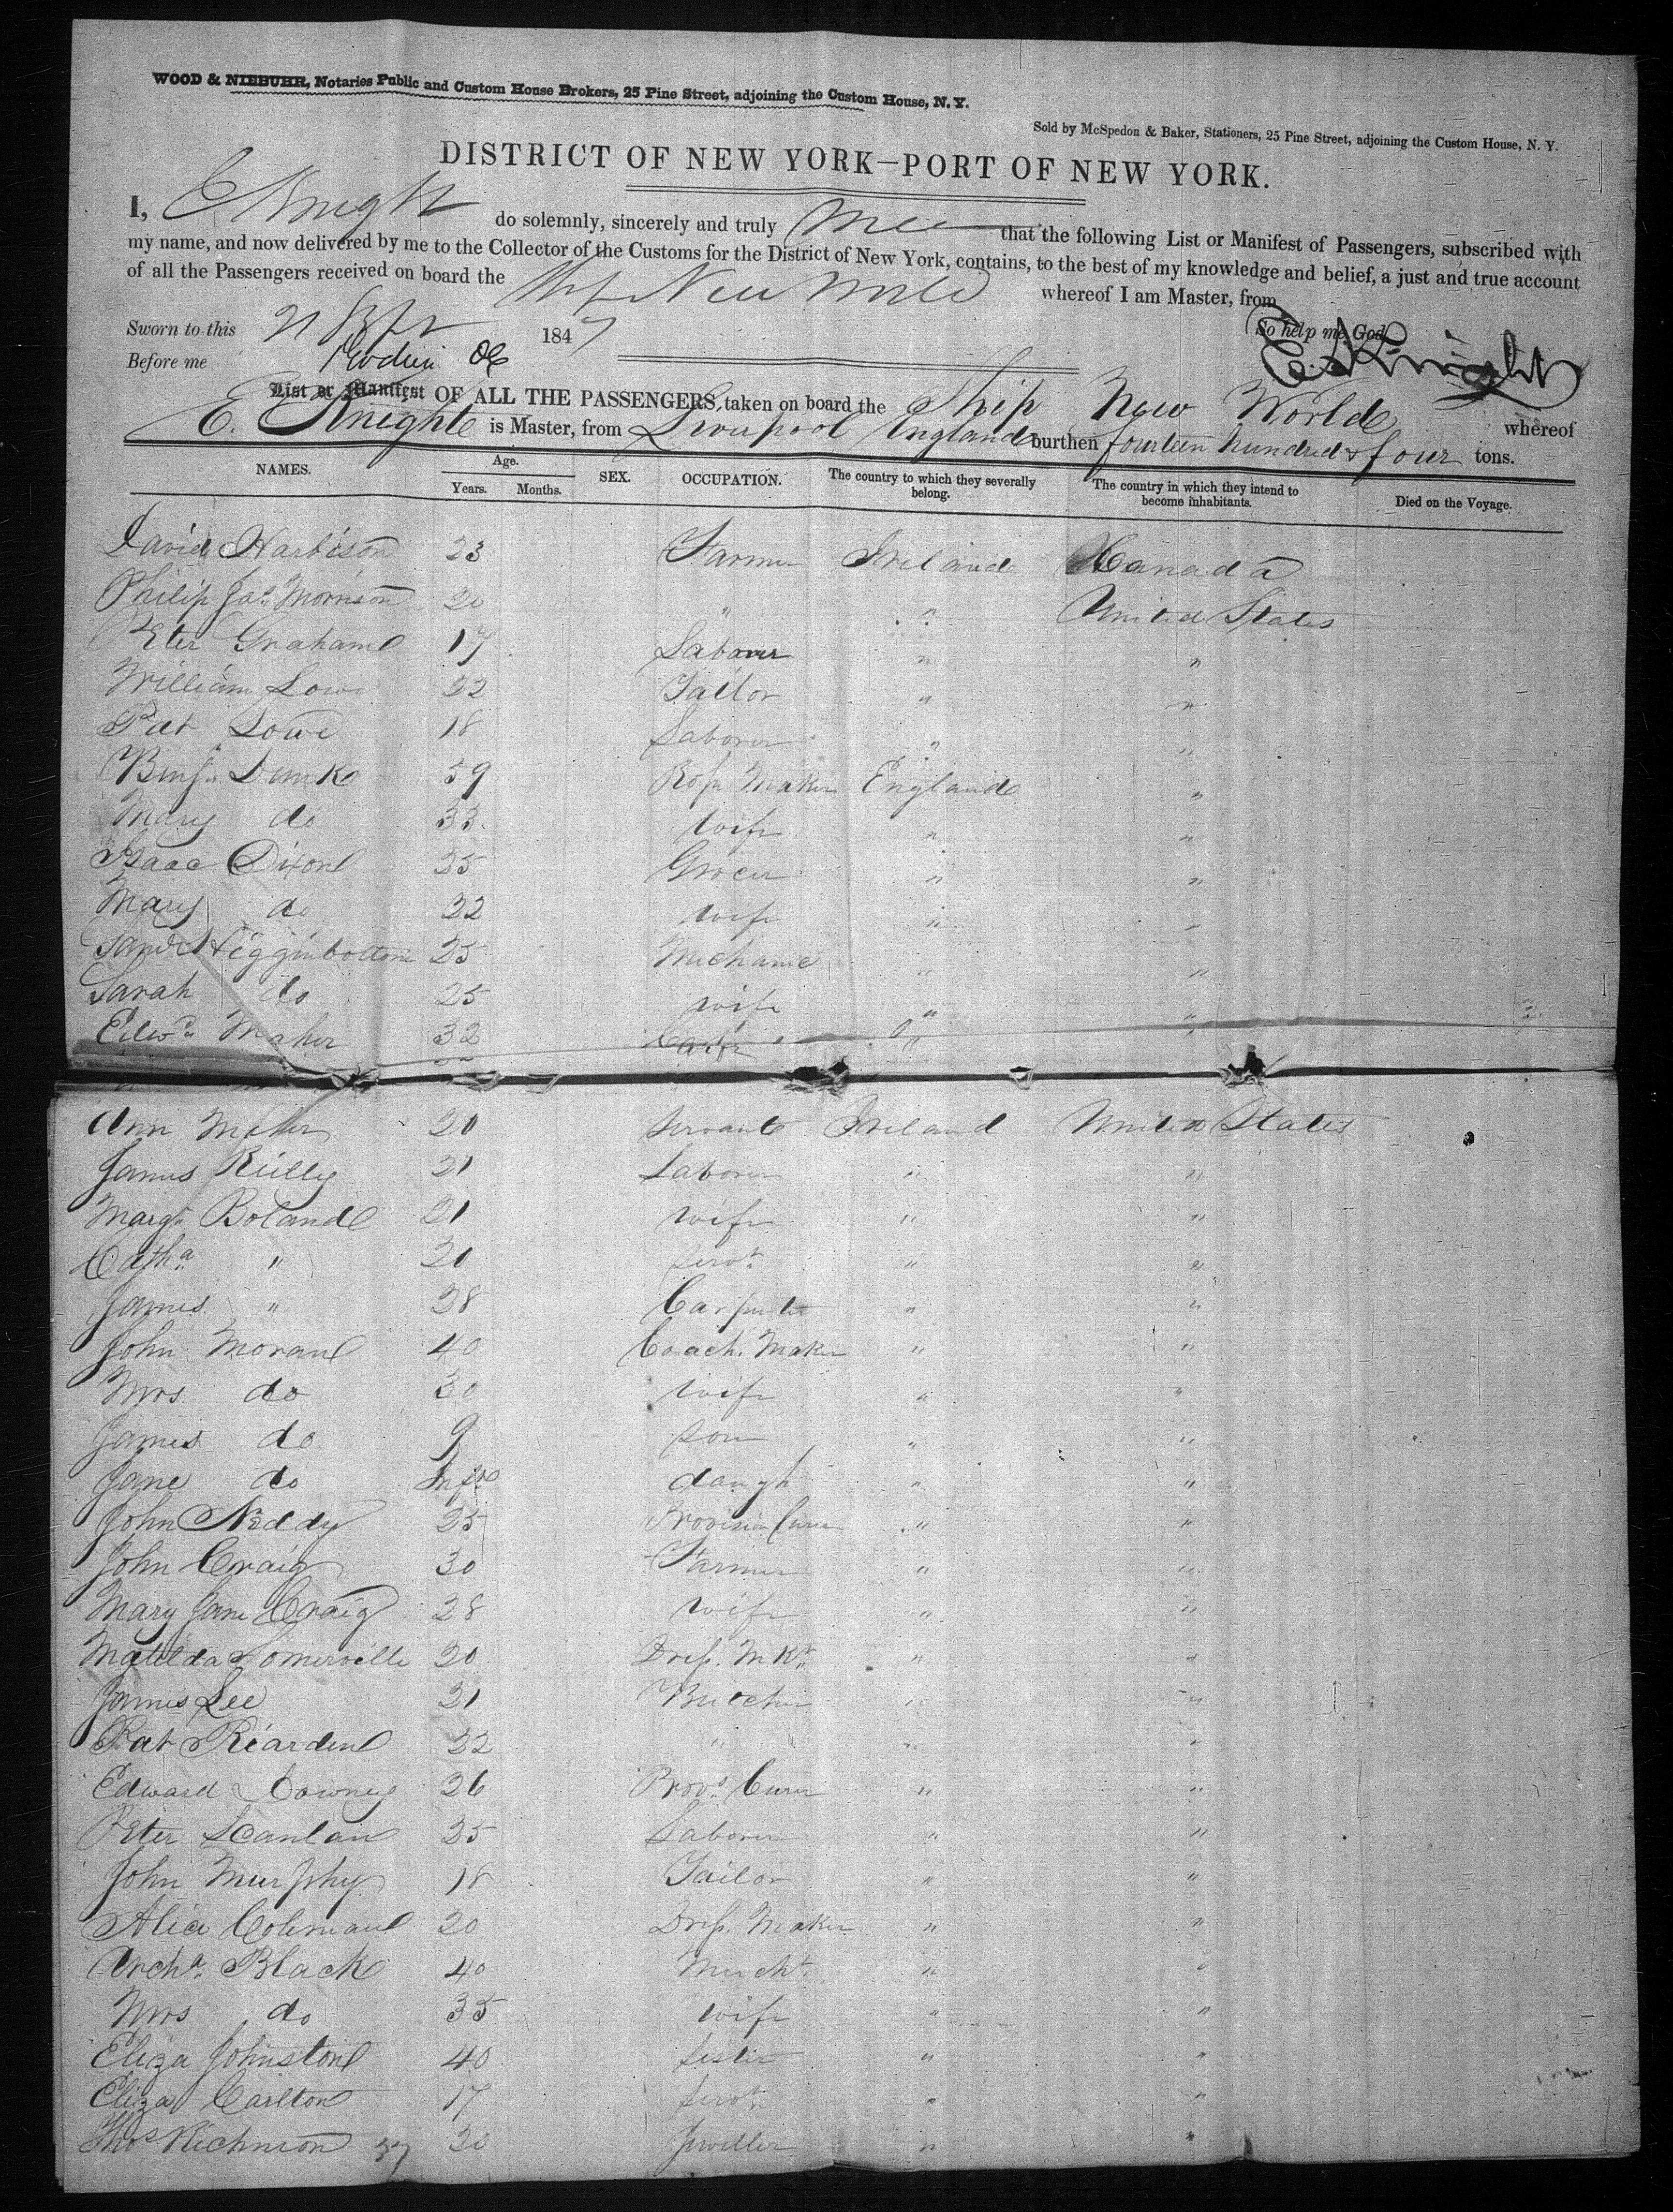 WOOD & NIEBUHR, Notaries Public and Custom House Brokers, 25 Pine Street, adjoining the Custom House, N. Y.
Sold by McSpedon & Baker, Stationers, 25 Pine Street, adjoining the Custom House, N. Y.
DISTRICT OF NEW YORK—PORT OF NEW YORK.
I, E Knight do solemnly, sincerely and truly that the following List or Manifest of Passengers, subscribed with
my name, and now delivered by me to the Collector of the Customs for the District of New York, contains, to the best of my knowledge and belief, a just and true account
of all the Passengers received on board the Ship New World whereof I am Master, from
Sworn to this 21 Sept 1847 So help me God
Before me E. Knight
List or Manifest OF ALL THE PASSENGERS, taken on board the Ship New World whereof
E. Knight is Master, from Liverpool England burthen fourteen hundred & four tons.
NAMES. Age. Years. Months. SEX. OCCUPATION. The country to which they severally belong. The country in which they intend to become inhabitants. Died on the Voyage.
David Harbison 23 Farmer Ireland Canada
Philip Jas. Morrison 20 " " United States
Peter Graham 17 Laborer " "
William Lowe 22 Tailor " "
Pat Lowe 18 Laborer " "
Benjn 59 Rope Maker England "
Mary do 33 wife " "
Isaac Dixon 25 Grocer " "
Mary do 22 wife " "
Saml Higginbottom 25 Mechanic " "
Sarah do 25 wife " "
Edwd Maher 32 " "
Ann Maher 20 Servant Ireland United States
James Reilly 21 Laborer " "
Margt Boland 21 wife " "
Catha " 20 servt " "
James " 28 Carpenter " "
John Moran 40 Coach Maker " "
Mrs do 30 wife " "
James do 9 son " "
Jane do Inft daugh " "
John Neddy 25 Provision Curer " "
John Craig 30 Farmer " "
Mary Jane Craig 28 wife " "
Matilda Somerville 20 Dress Mkr " "
James Lee 21 Butcher " "
Pat Riarden 22 " " " "
Edward Downey 26 Provs Curer " "
Peter Scanlan 25 Laborer " "
John Murphy 18 Tailor " "
Alice Coleman 20 Dress Maker " "
Archd Black 40 Mercht " "
Mrs do 35 wife " "
Eliza Johnston 40 sister " "
Eliza Carlton 17 servt " "
Thos Richmon 37 20 Jweller " "